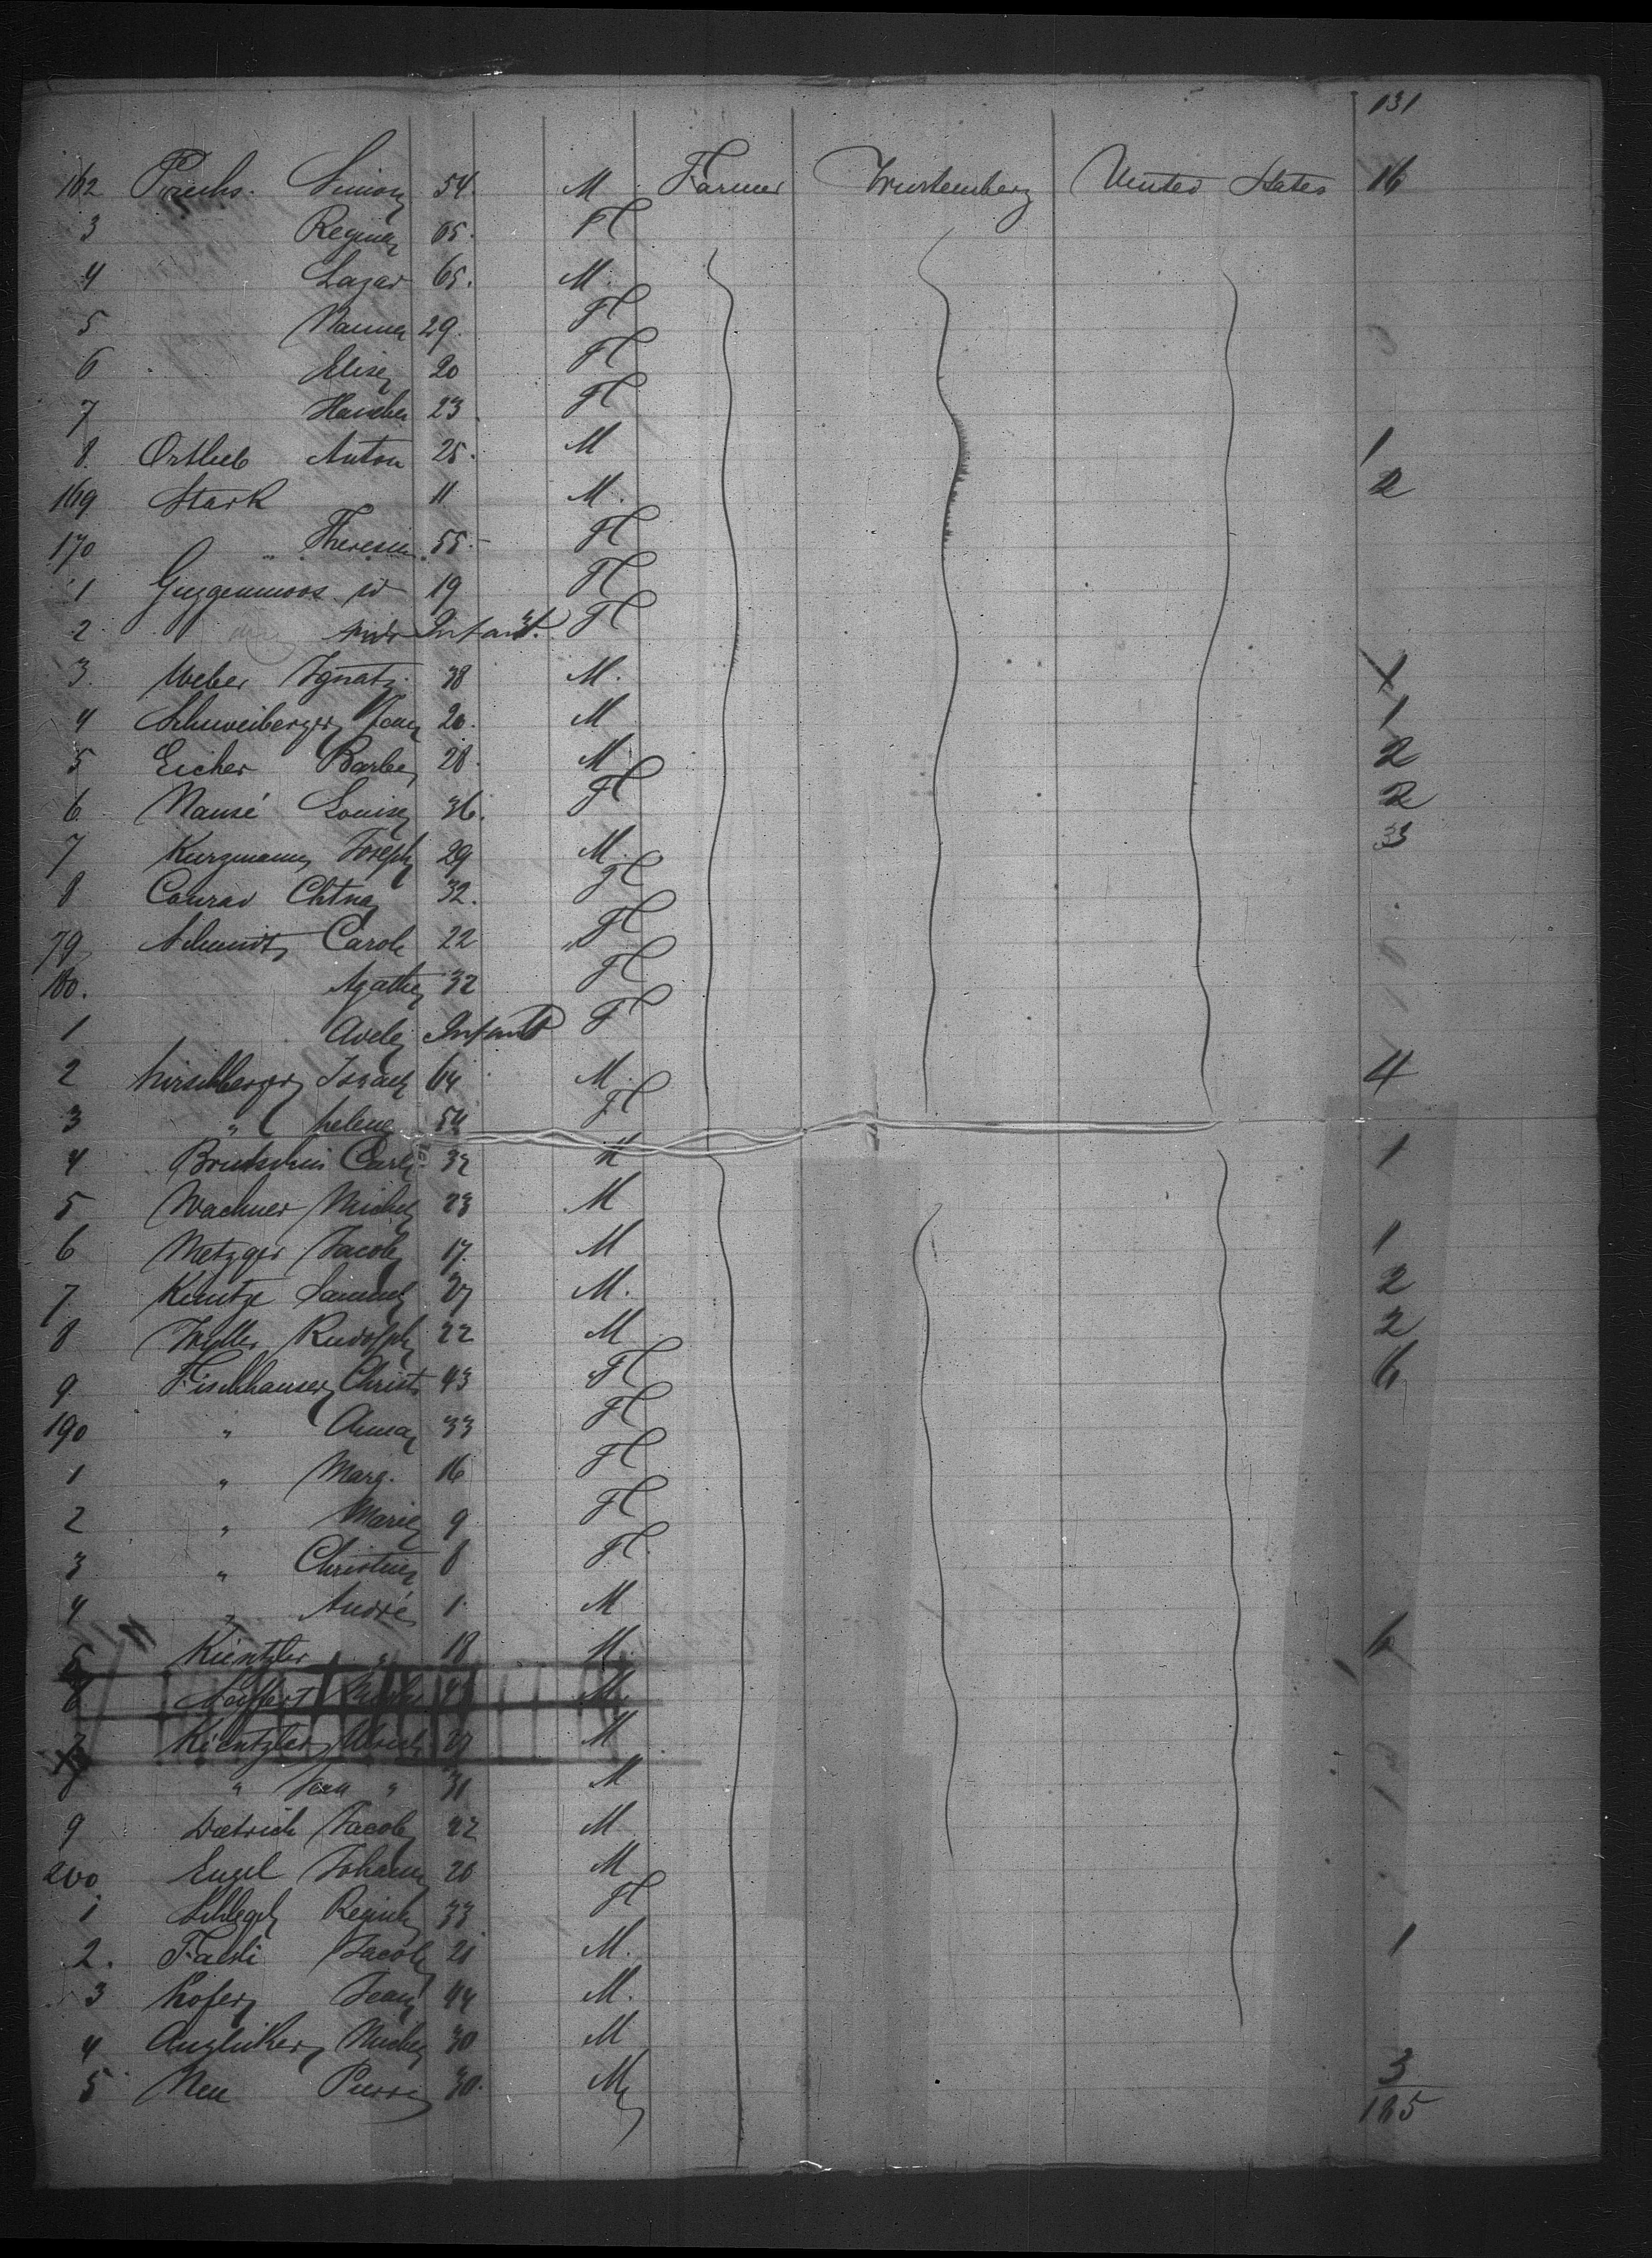 131
162 Fuchs Simon 54 M Farmer Wurtemberg United States 16
3 Regina 65 Fl
4 Lazar 65. M
5 Nanna 29. Fl
6 Elise 20 Fl
7 23 Fl
8 Ortlieb Anton 25. M 1
169 Stark 11 M. 2
170 " Theresia 55 Fl
1 Guggenmoos 19 Fl
2 Infant. Fl
3. Weber Ignatz 38 M. 1
4 Jean 20. M 1
5 Eicher Barbe 28. M 2
6 Nausé Louise 36. Fl 2
7 Kurzmann Joseph 29 M. 3
8 Conrad Chtna 32. Fl
79 Schmidt Carol 22 " Fl
180. Agathe 32 Fl
1 Adele Infant F
2 Hirschberger Israel 64 M. 4
3 " Helene 54 Fl
4 Carl 32 M 1
5 Wachner Michel 23 M
6 Metzger Jacob 17. M 1
7 Kuntze Samuel 27 M. 2
8 Rudolph 22 M 2
9 Fischhauser Christ 43 Fl 6
190 " Anna 33 Fl
1 " Marg. 16 Fl
2 " Marie 9 Fl
3 " Christine 8 Fl
4 " André 1. M
5 Kientzler " 18 M. 6
6 Seiffert M.
7 Kientzler Ulrich 27 M
8 " Jean " 31 M
9 Dietrich Jacob 22 M
200 Engel Johann 20 M
1 Schlegel 33 Fl
2. Jacob 21 M. 1
3 Hofer Jean 44 M.
4 Michel 30 M
5 Neu Pierre 30. M 3
185